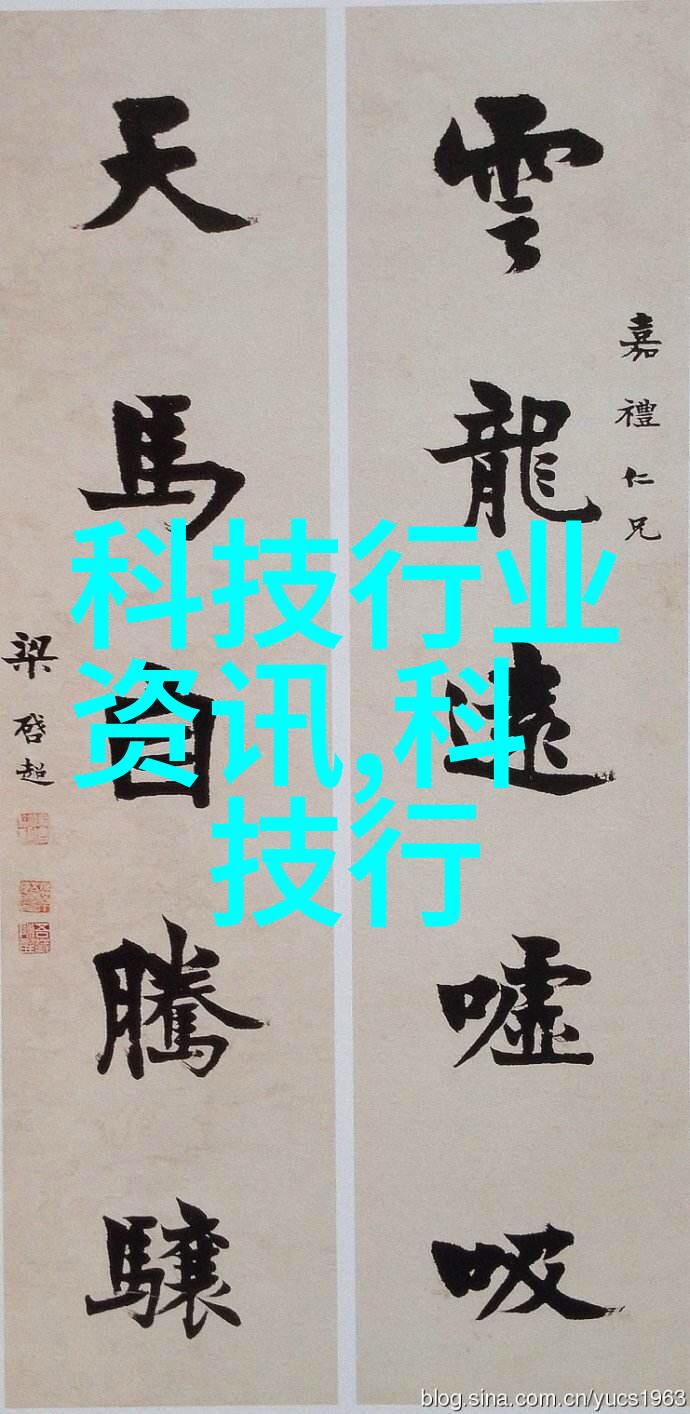 雲龍遠嘘吸
嘉禮仁兄
天馬自騰驤
梁啓超
科技行业
资讯,科
技行
blog.sina.com.cn/yucs1963